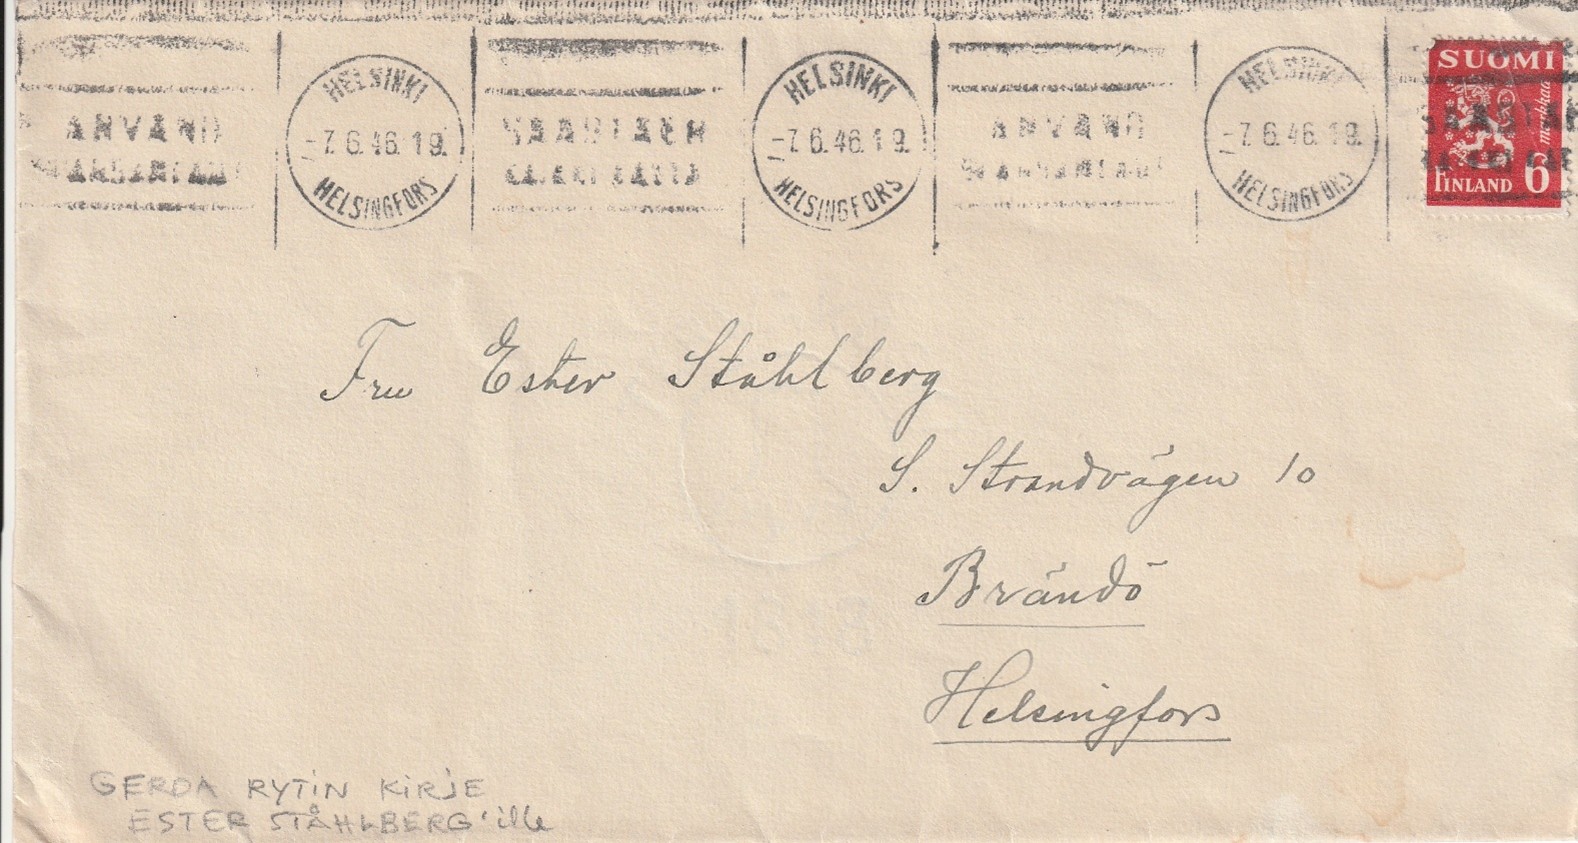 ANVÄND HELSINKI -7.6.46.19. HELSINGFORS HELSINKI -7.6.46.19. HELSINGFORS ANVÄND HELSINKI -7.6.46.19. HELSINGFORS
SUOMI
markkaa
FINLAND 6
Fru Ester Ståhlberg
S. Strandvägen 10
Brändö
Helsingfors
GERDA RYTIN KIRJE
ESTER STÅHLBERG'ille